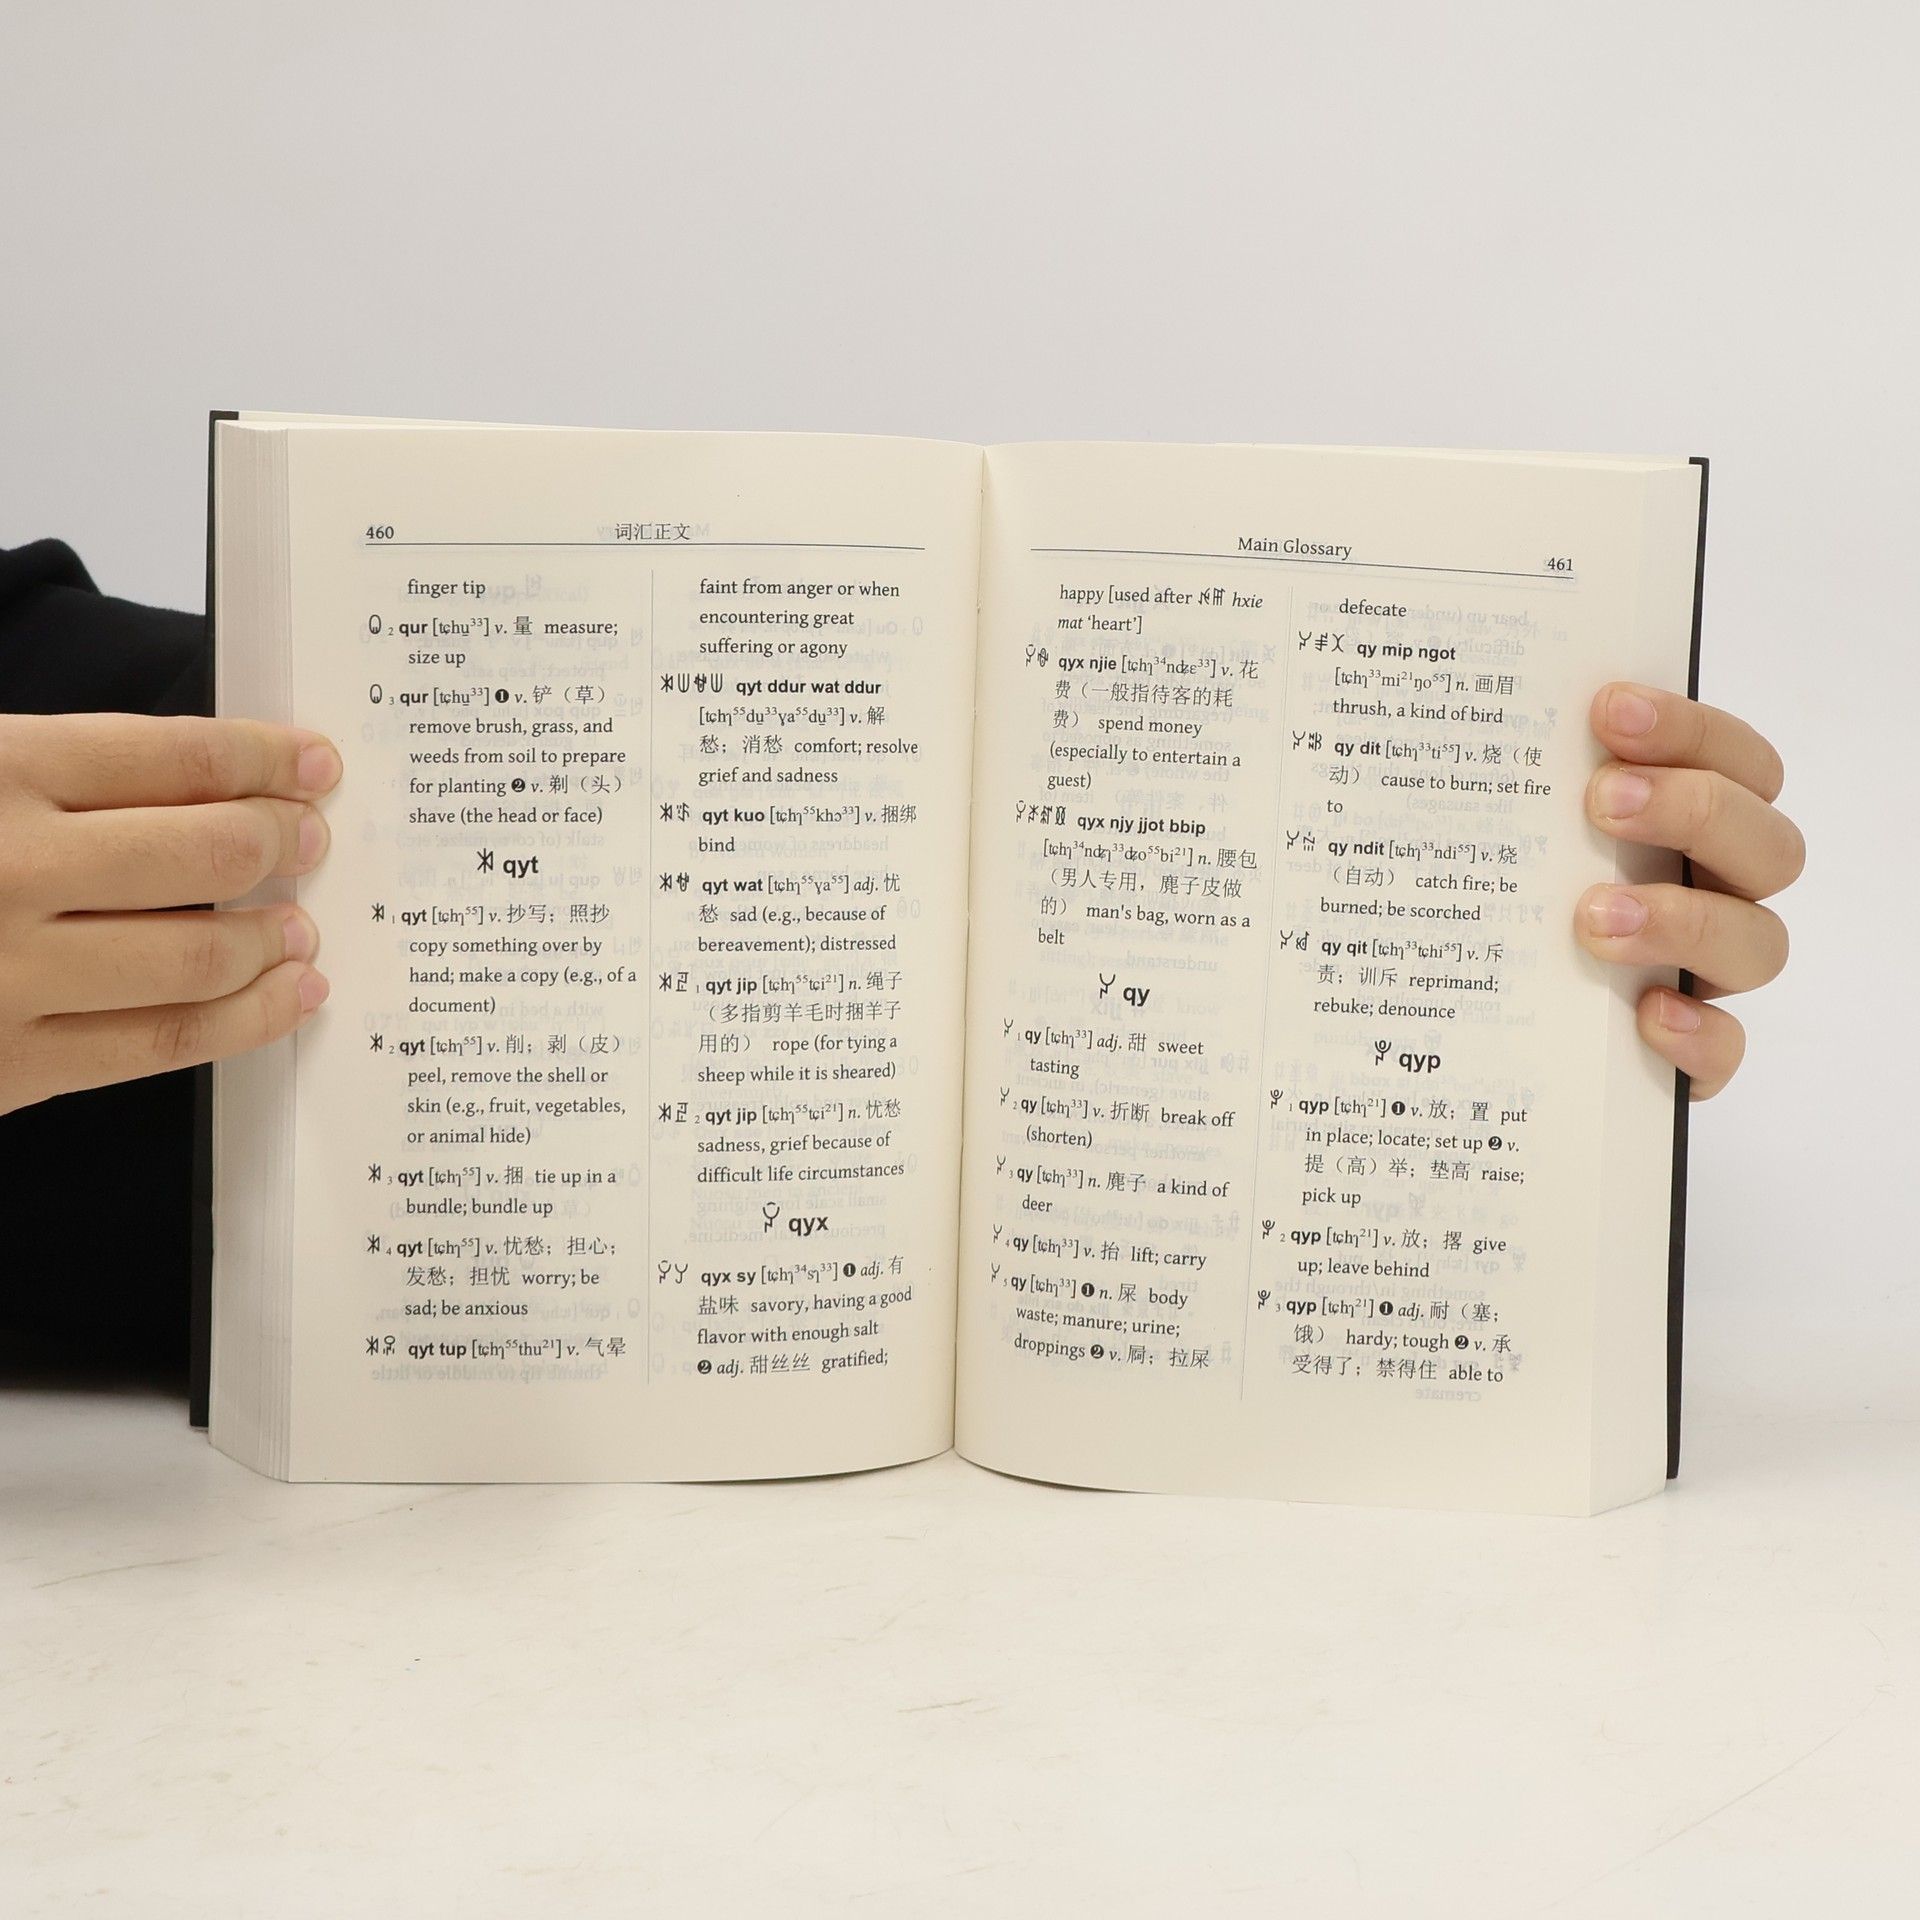 460
词汇正文
finger tip
ꐚ 2 qur [tɕhu̠³³] v. 量 measure;
size up
3 qur [tɕhu̠³³] ❶ v. 铲（草）
remove brush, grass, and
weeds from soil to prepare
for planting ❷ v. 剃（头）
shave (the head or face)
qyt
1 qyt [tɕhɿ⁵⁵] v. 抄写；照抄
copy something over by
hand; make a copy (e.g., of a
document)
2 qyt [tɕhɿ⁵⁵] v. 削；剥（皮）
peel, remove the shell or
skin (e.g., fruit, vegetables,
or animal hide)
3 qyt [tɕhɿ⁵⁵] v. 捆 tie up in a
bundle; bundle up
4 qyt [tɕhɿ⁵⁵] v. 忧愁；担心；
发愁；担忧 worry; be
sad; be anxious
qyt tup [tɕhɿ⁵⁵thu²¹] v. 气晕
faint from anger or when
encountering great
suffering or agony
qyt ddur wat ddur
[tɕhɿ⁵⁵du̠³³ɣa⁵⁵du̠³³] v. 解
愁；消愁 comfort; resolve
grief and sadness
qyt kuo [tɕhɿ⁵⁵khɔ³³] v. 捆绑
bind
qyt wat [tɕhɿ⁵⁵ɣa⁵⁵] adj. 忧
愁 sad (e.g., because of
bereavement); distressed
1 qyt jip [tɕhɿ⁵⁵tɕi²¹] n. 绳子
（多指剪羊毛时捆羊子
用的） rope (for tying a
sheep while it is sheared)
2 qyt jip [tɕhɿ⁵⁵tɕi²¹] n. 忧愁
sadness, grief because of
difficult life circumstances
qyx
qyx sy [tɕhɿ³⁴sɿ³³] ❶ adj. 有
盐味 savory, having a good
flavor with enough salt
❷ adj. 甜丝丝 gratified;
Main Glossary
461
happy [used after hxie
mat ‘heart’]
qyx njie [tɕhɿ³⁴ndʑɛ³³] v. 花
费（一般指待客的耗
费） spend money
(especially to entertain a
guest)
qyx njy jjot bbip
[tɕhɿ³⁴ndʑɿ³³dʑo⁵⁵bi²¹] n. 腰包
（男人专用，麂子皮做
的） man's bag, worn as a
belt
qy
1 qy [tɕhɿ³³] adj. 甜 sweet
tasting
2 qy [tɕhɿ³³] v. 折断 break off
(shorten)
3 qy [tɕhɿ³³] n. 麂子 a kind of
deer
4 qy [tɕhɿ³³] v. 抬 lift; carry
5 qy [tɕhɿ³³] ❶ n. 屎 body
waste; manure; urine;
droppings ❷ v. 屙；拉屎
defecate
qy mip ngot
[tɕhɿ³³mi²¹ŋo⁵⁵] n. 画眉
thrush, a kind of bird
qy dit [tɕhɿ³³ti⁵⁵] v. 烧（使
动） cause to burn; set fire
to
qy ndit [tɕhɿ³³ndi⁵⁵] v. 烧
（自动） catch fire; be
burned; be scorched
qy qit [tɕhɿ³³tɕhi⁵⁵] v. 斥
责；训斥 reprimand;
rebuke; denounce
qyp
1 qyp [tɕhɿ²¹] ❶ v. 放；置 put
in place; locate; set up ❷ v.
提（高）举；垫高 raise;
pick up
2 qyp [tɕhɿ²¹] v. 放；撂 give
up; leave behind
3 qyp [tɕhɿ²¹] ❶ adj. 耐（塞；
饿） hardy; tough ❷ v. 承
受得了；禁得住 able to